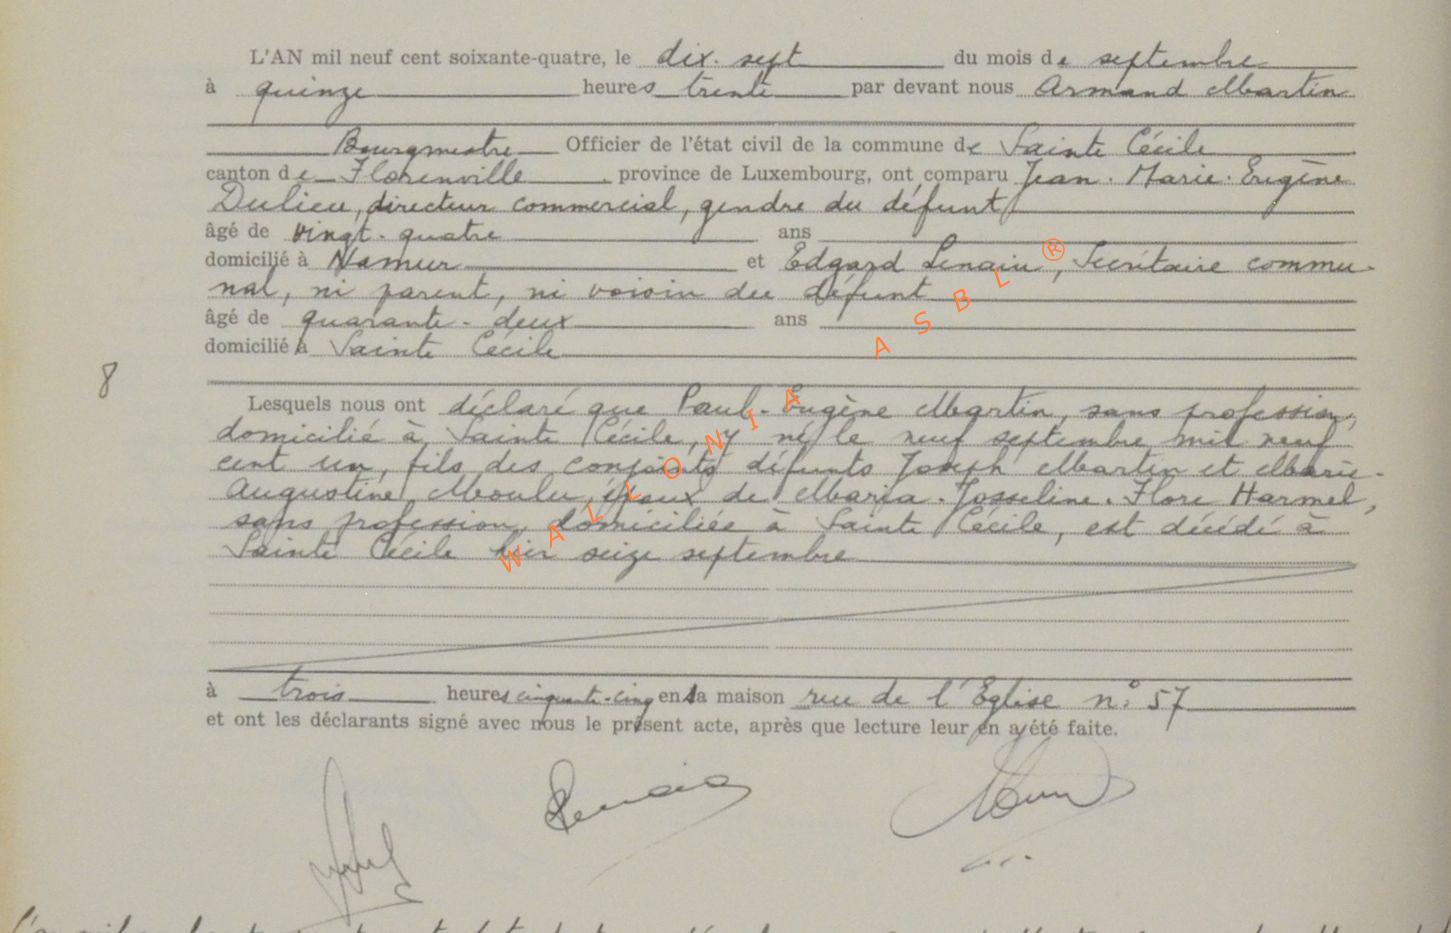 L'AN mil neuf cent soixante-quatre, le dix-sept du mois de septembre
à quinze heures trente par devant nous Armand Martin
Bourgmestre Officier de l'état civil de la commune de Sainte Cécile
canton de Florenville, province de Luxembourg, ont comparu Jean-Marie-Eugène
Dulieu, directeur commercial, gendre du défunt
âgé de vingt-quatre ans
domicilié à Namur et Edgard Lenain, Secrétaire commu-
nal, ni parent, ni voisin du défunt
âgé de quarante-deux ans
domicilié à Sainte Cécile
8
Lesquels nous ont déclaré que Paul-Eugène Martin, sans profession,
domicilié à Sainte Cécile, y né le neuf septembre mil neuf
cent un, fils des conjoints défunts Joseph Martin et Marie-
Augustine Moulu, époux de Maria-Josseline-Flore Harmel,
sans profession, domiciliée à Sainte Cécile, est décédé à
Sainte Cécile hier seize septembre
à trois heures cinquante-cinq en la maison rue de l'Eglise n° 57
et ont les déclarants signé avec nous le présent acte, après que lecture leur en a été faite.
WALLONIA ASBL ®